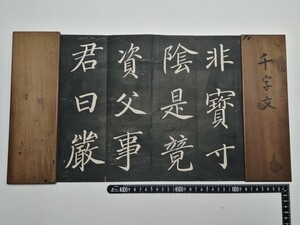 千字文
非寶寸
陰是競
資父事
君曰嚴